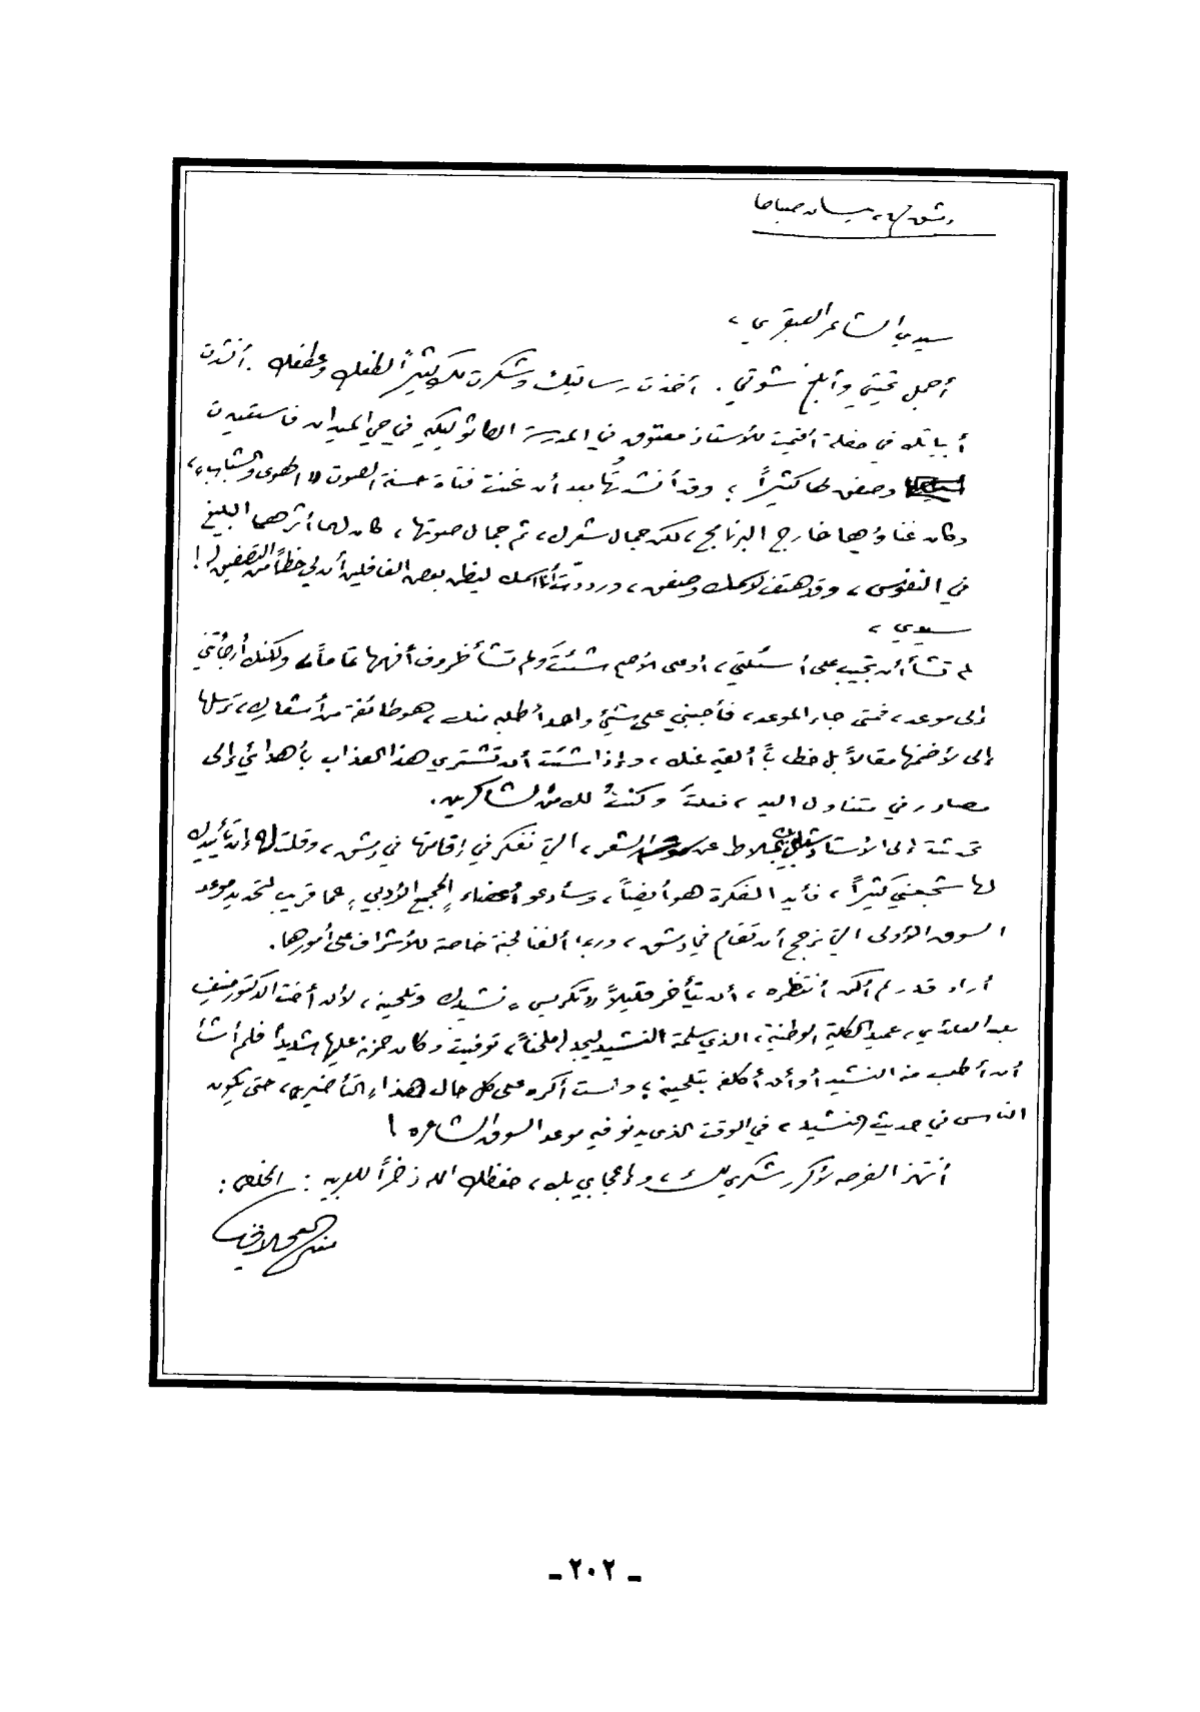 دمشق نيسان صباحا
سيدي الشاعر العبقري ،
أجمل تحيتي وأبلغ شوقي . أخذت رسالتيك وشكرت لك كثيراً لطفك وعطفك . أنشدت
أبياتك في حفلة أقيمت للأستاذ معتوق في المدرسة الكاثوليكية في حي الميدان فاستعيدت
وصفق لها كثيراً ؛ وقد أنشدتُها بعد أن غنت فتاة حسنة الصوت « الهوى والشباب » ،
وكان غناؤهما خارج البرنامج ، لكن جمال شعرك ، ثم جمال صوتها ، كان لهما أثرهما البليغ
في النفوس ، وقد هتف لاسمك وصفق ، ورددّت أنا اسمك ليظن بعض الغافلين أن لي حظاً من التصفيق !
سيدي ،
لم تشأ أن تجيب على أسئلتي ، أو على الأصح شئتَ ولم تشأ ظروف أفهمها تماماً ، ولكنك أرجأتني
إلى موعد ، فمتى جاء الموعد ، فأجبني على شيء واحد أطلبه منك ، هو طائفة من أشعارك ، ترسلها
إلي لأضمنها مقالاً بل خطاباً ألقيه عنك ، وإذا شئت أن تشتري هذا العذاب بأهدائي إلى
مصادر في متناول اليد ، فعلتَ وكنتُ لك من الشاكرين .
تحدثت إلى الأستاذ شبلي بك الملاط عن سوق الشعر ، التي نفكر في إقامتها في دمشق ، وقلت له إن تأييدك
لها شجعني كثيراً ، فأيد الفكرة هو أيضاً ، وسأدعو أعضاء المجمع الأدبي ، عما قريب لتحديد موعد
السوق الأولى التي نرجح أن تقام في دمشق ، وربما ألفنا لجنة خاصة للأشراف على أمورها .
أراد قدر لم أكن أنتظره ، أن يتأخر قليلاً « تكريس » نشيدك وتلحينه ، لأن أخت الدكتور منيف
بك العائدي ، عميد الكلية الوطنية ، الذي سلمته النشيد ليجد له ملحناً ، توفيت وكان حزنه عليها شديداً فلم أشأ
أن أطلب منه النشيد أو أن أكلفه بتلحينه ؛ ولست أكره على كل حال هذا التأخير ، حتى يكون
الناس في حديث النشيد ، في الوقت الذي يدنو فيه موعد السوق الشاعرة !
أنتهز الفرصة لأكرر شكري لك ، وإعجابي بك ، حفظك الله ذخراً للعربية : المخلص :
منير العجلاني
ـ ٢٠٢ ـ